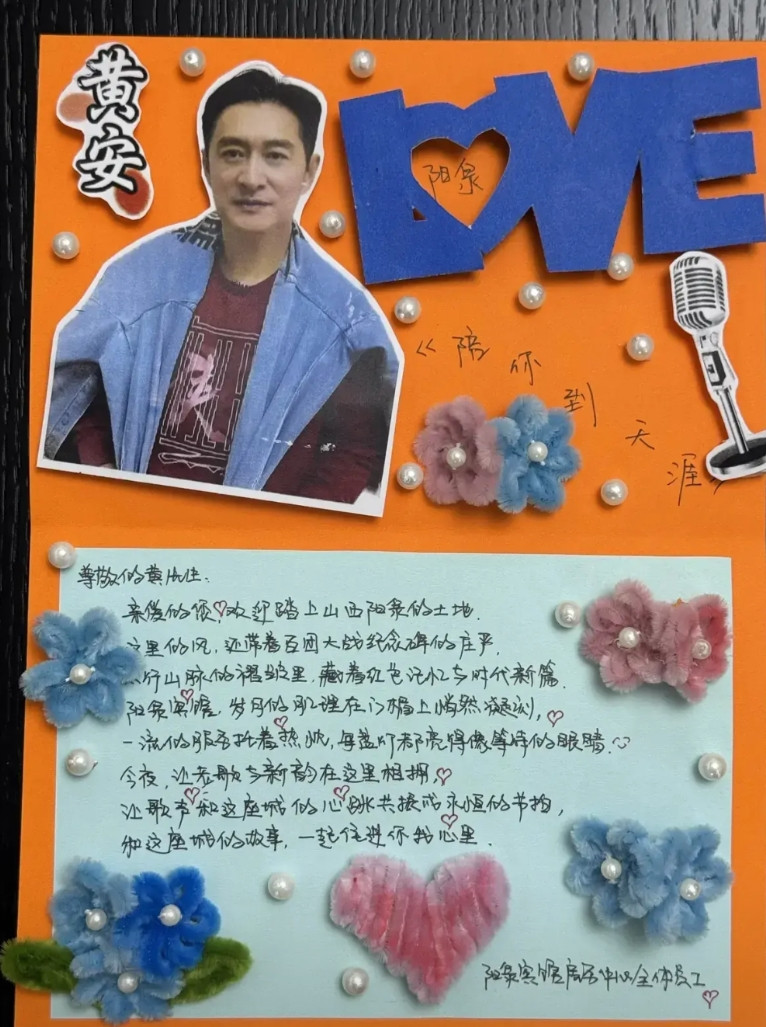 黄安
LOVE
阳泉
《陪你到天涯》
尊敬的黄先生:
亲爱的您,欢迎踏上山西阳泉的土地.
这里的风,还带着百团大战纪念碑的庄严.
太行山脉的褶皱里,藏着红色记忆与时代新篇.
阳泉宾馆,岁月的肌理在门楣上悄然凝刻,
一流的服务托着热忱,每盏灯都亮得像等待的眼睛.
今夜,让老歌与新韵在这里相拥,
让歌声和这座城的心脉共振成永恒的节拍,
和这座城的故事,一起住进你我心里.
阳泉宾馆房务中心全体员工